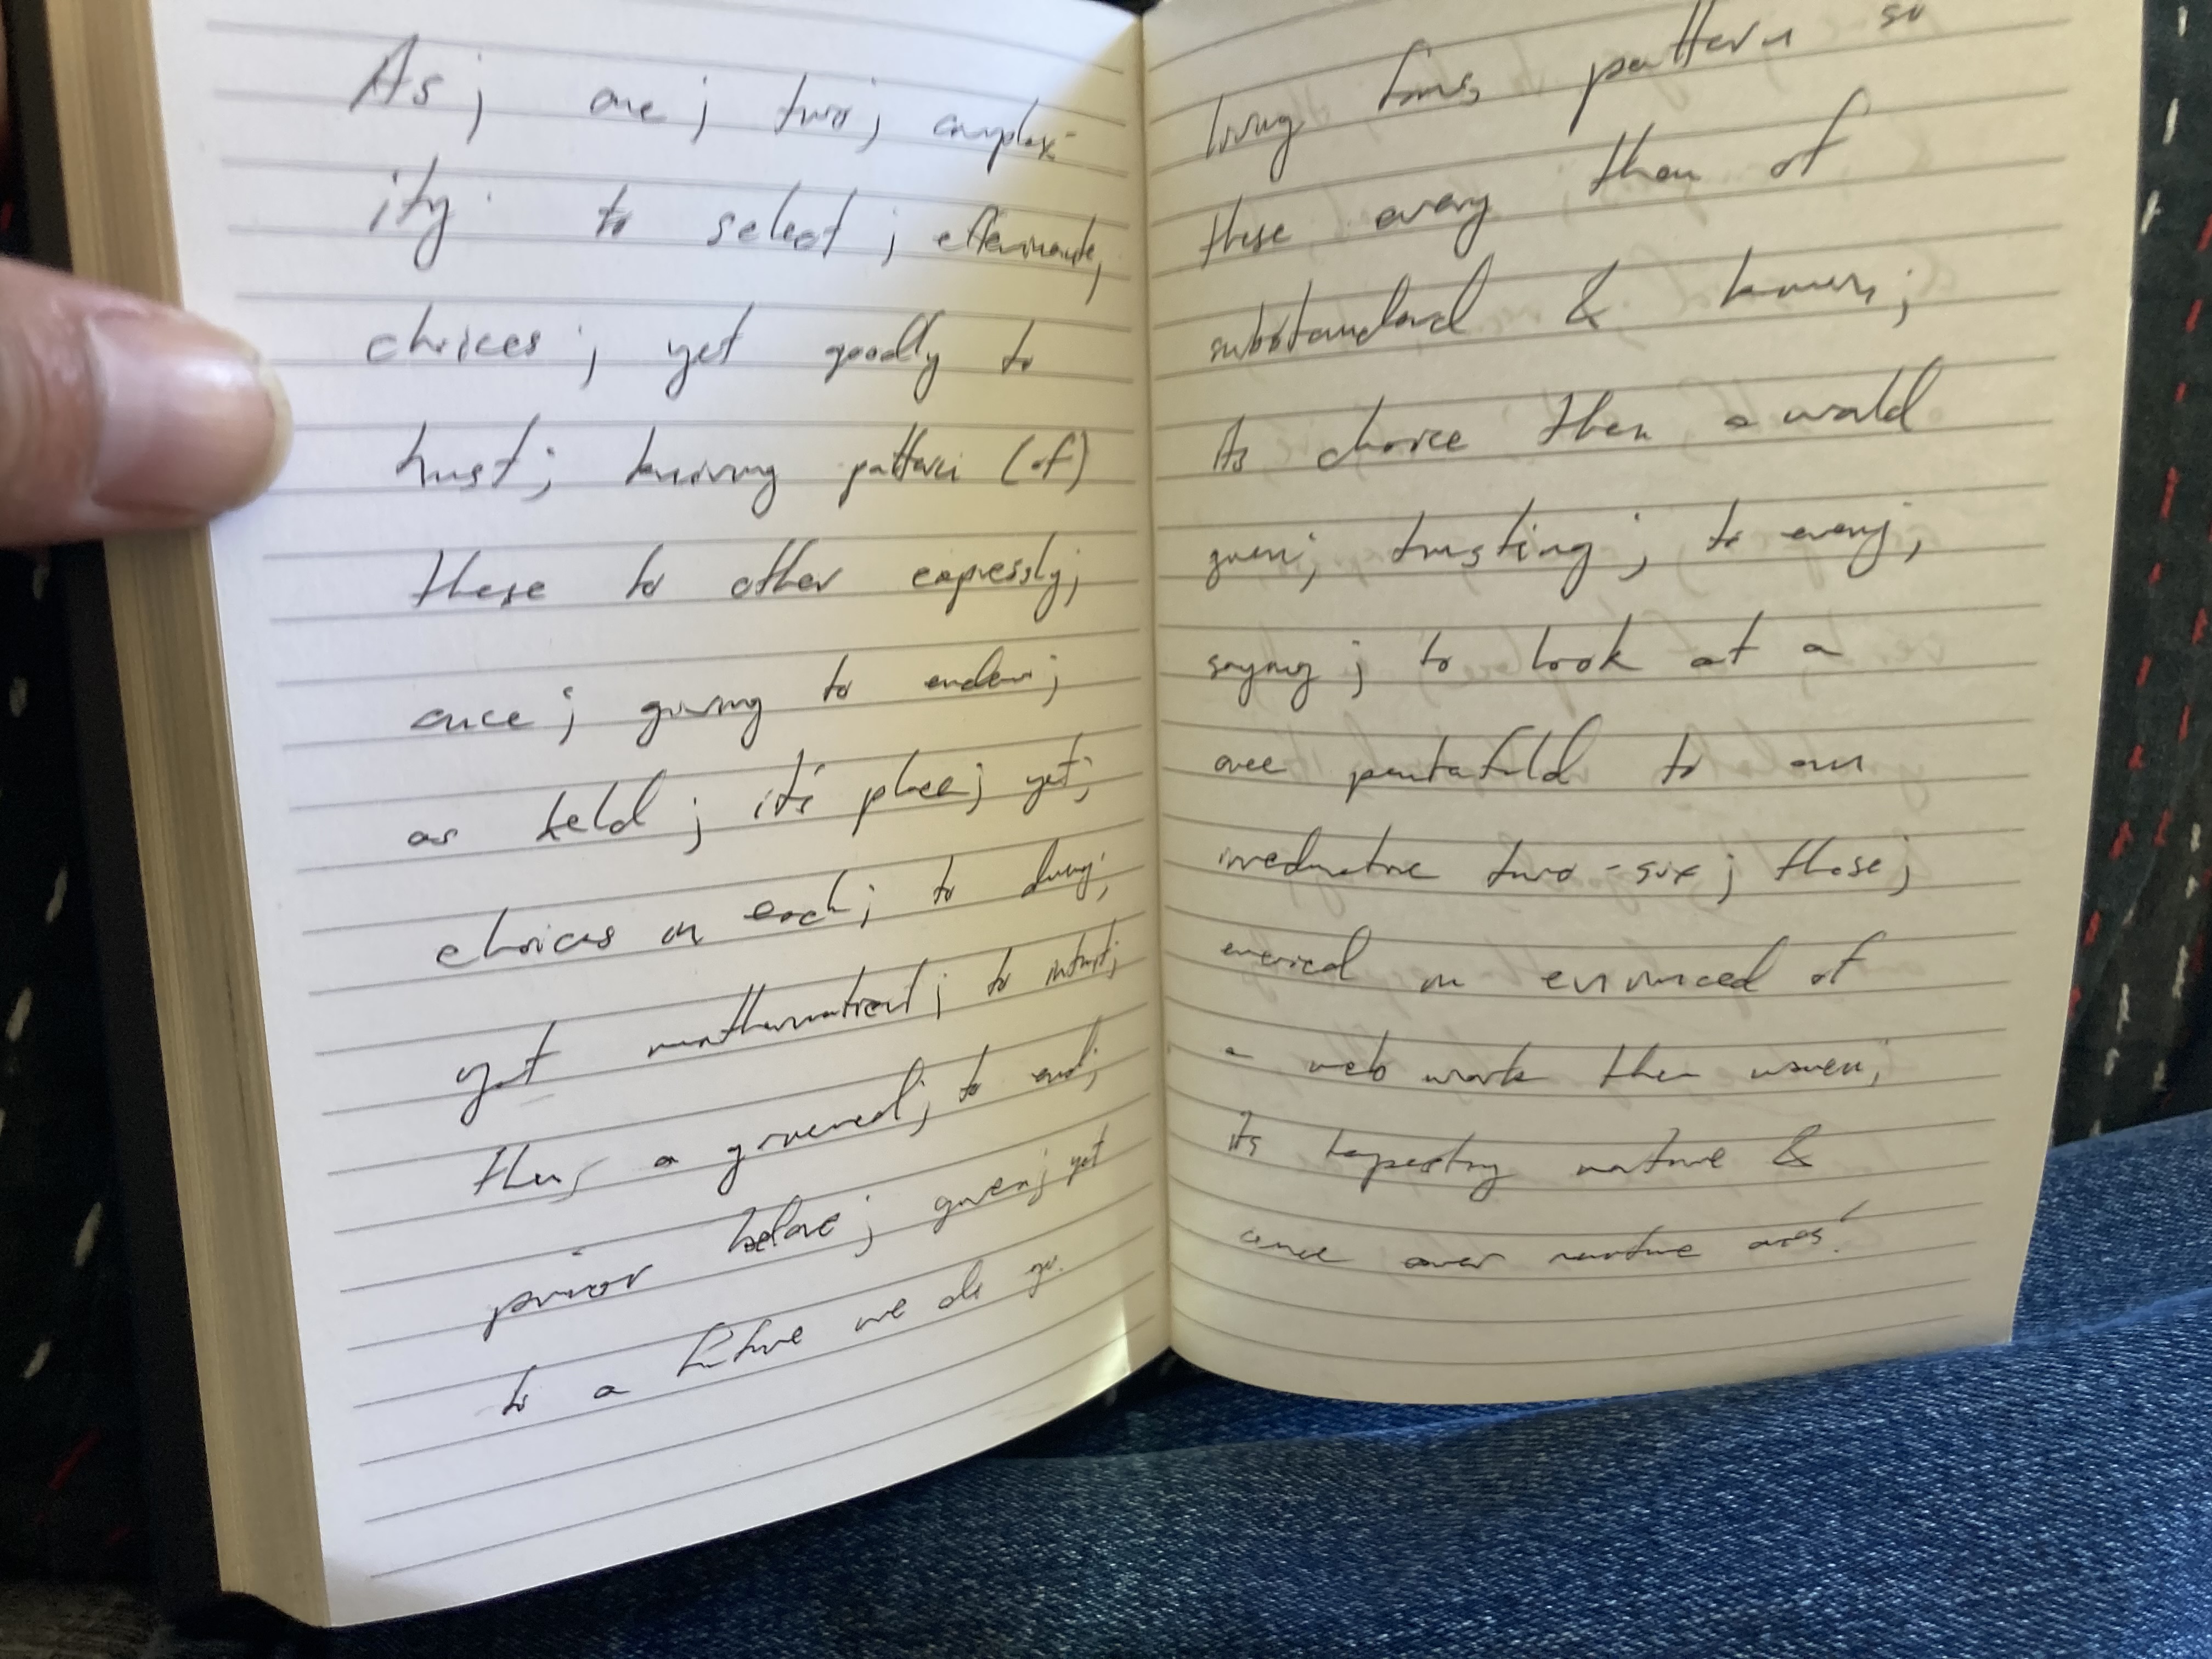 As; one; two; complex-
ity to select; effeminate,
choices; yet goodly to
trust; knowing pattern (of)
these to other expressly;
once; giving to endow;
as held; it's place; yet;
choices in each; to
yet mathematical; to intuit;
thus a grooved; to end;
prior before; given; yet
to a future we do go.
living forms, pattern so
these every then of
substandard & known;
As choice then a world
given; trusting; to every;
saying; to look at a
one pentafold to an
two-six; those;
in evinced of
a web work then woven;
its tapestry nature &
once over nurture ones!